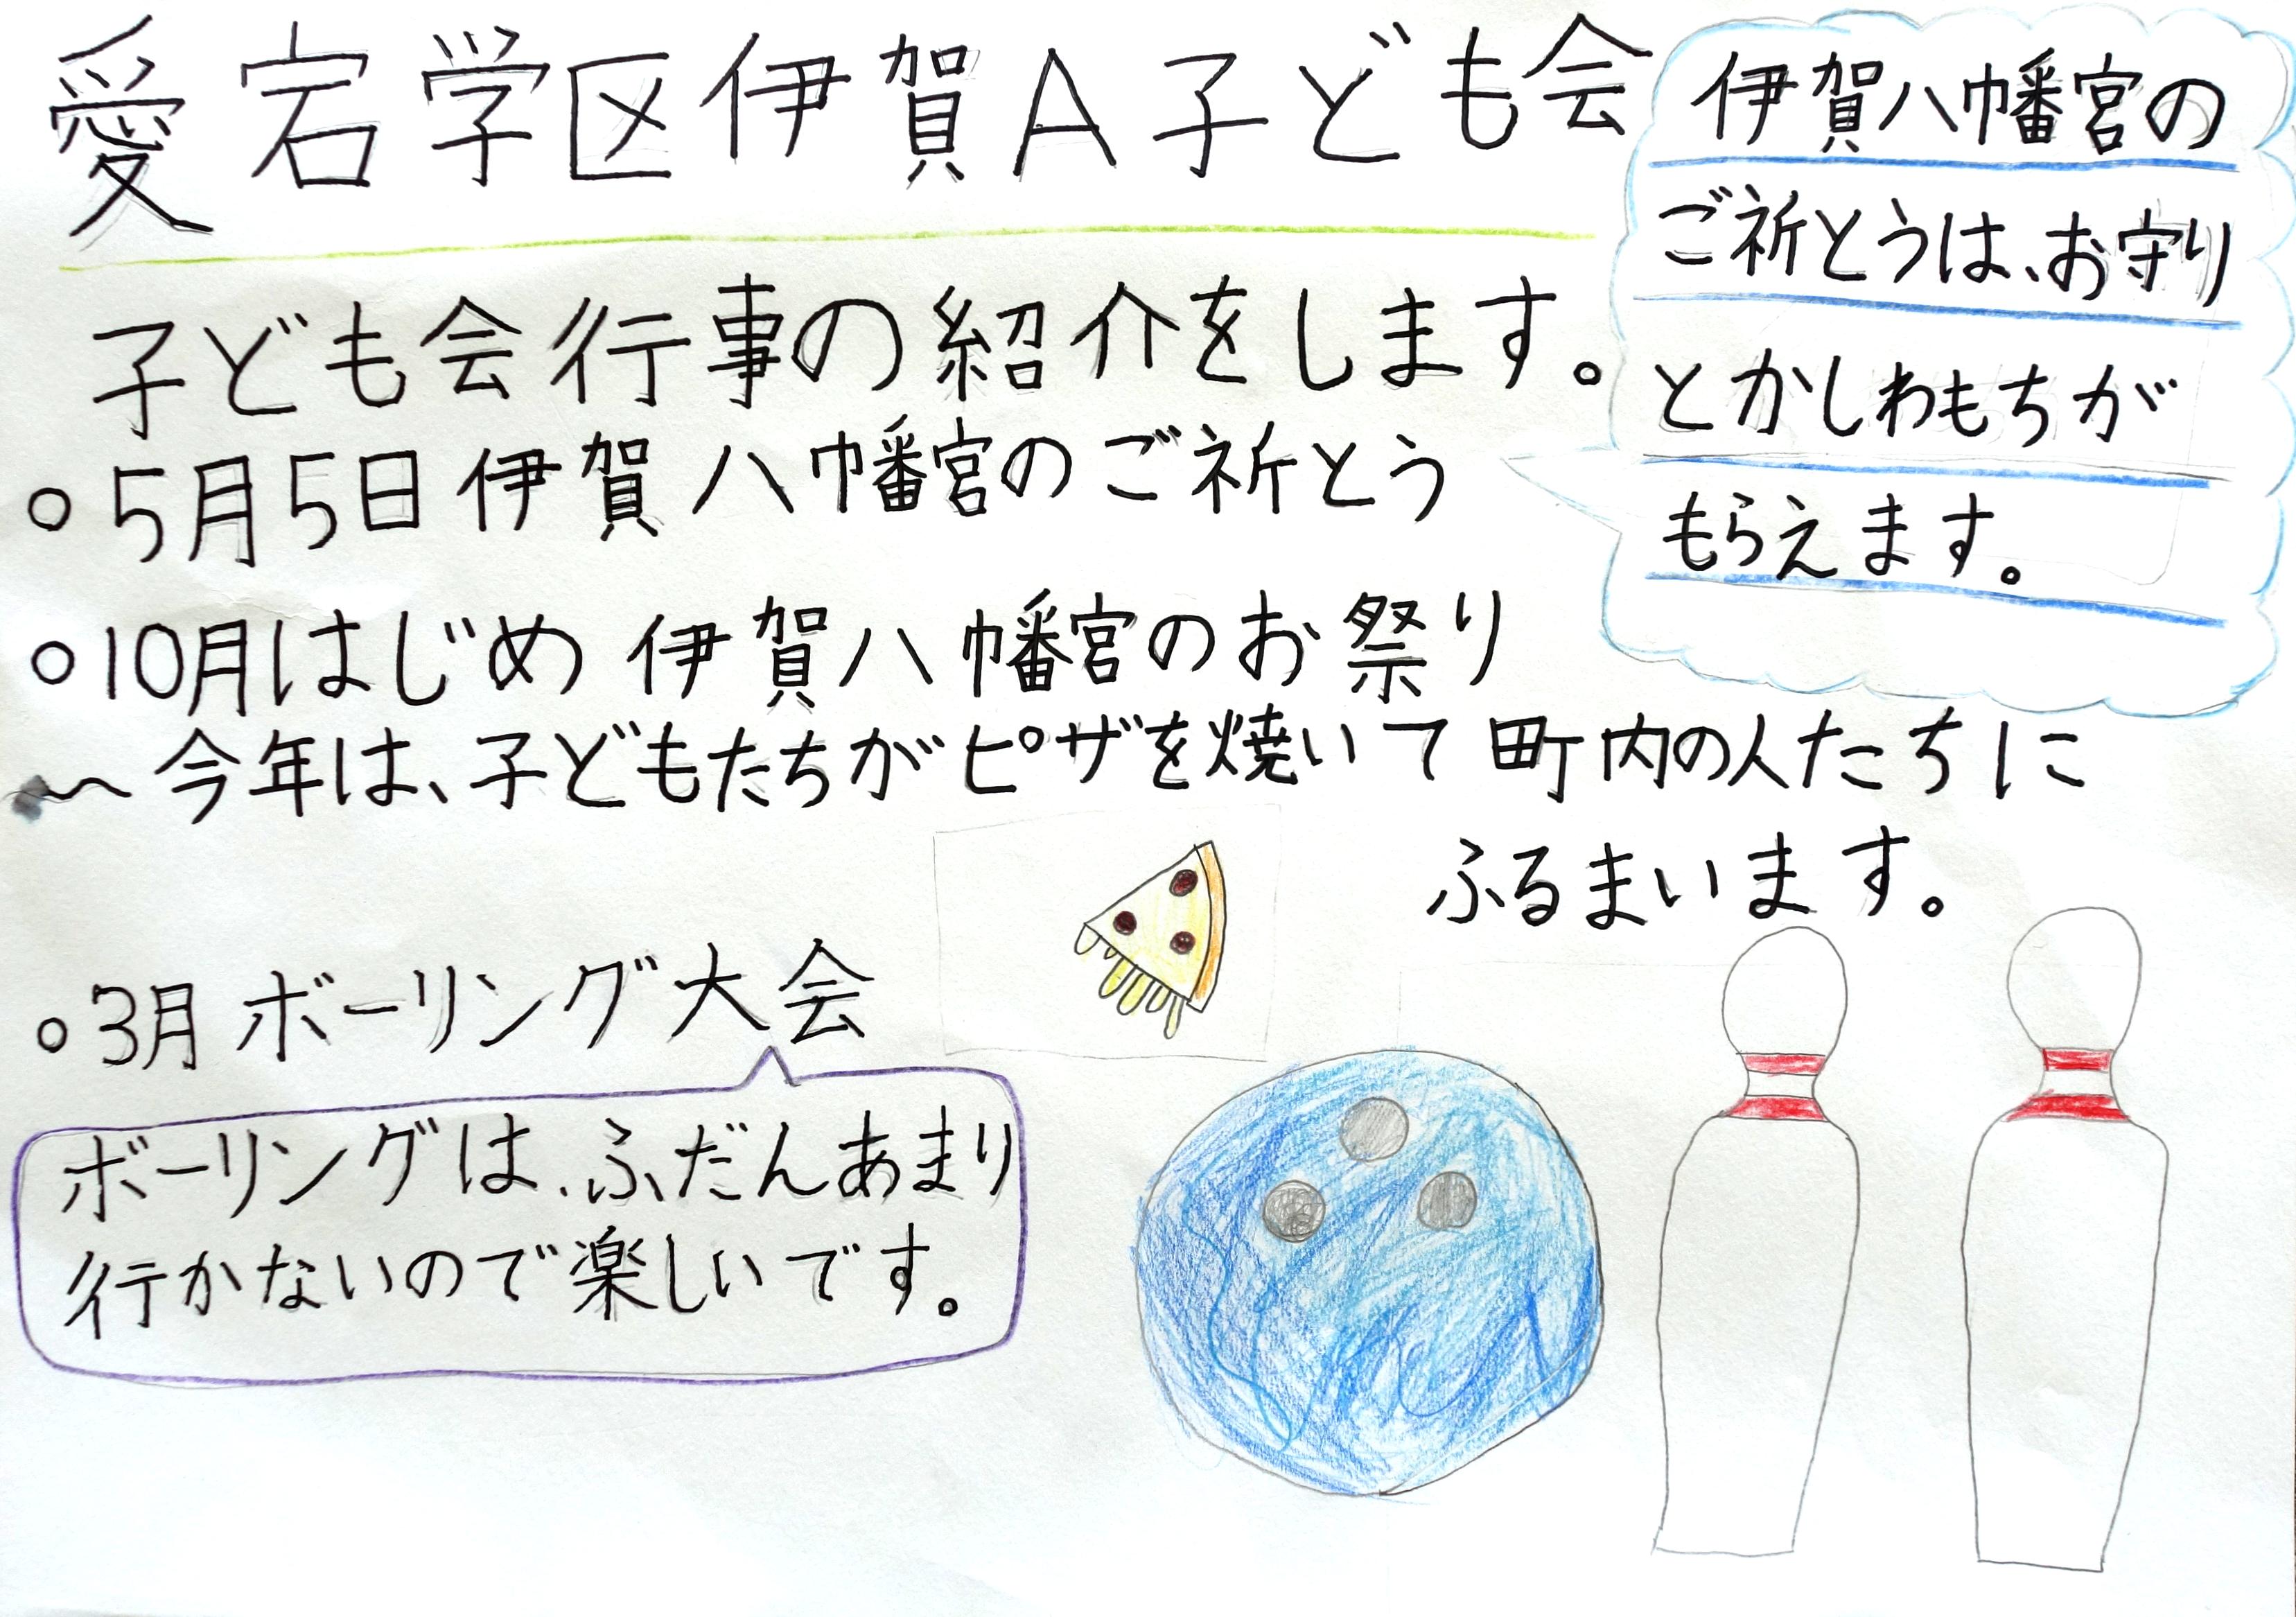 愛宕学区伊賀A子ども会
子ども会行事の紹介をします。
○5月5日 伊賀八幡宮のご祈とう
伊賀八幡宮の
ご祈とうは、お守り
とかしわもちが
もらえます。
○10月はじめ 伊賀八幡宮のお祭り
〜今年は、子どもたちがピザを焼いて町内の人たちに
ふるまいます。
○3月 ボーリング大会
ボーリングは、ふだんあまり
行かないので楽しいです。